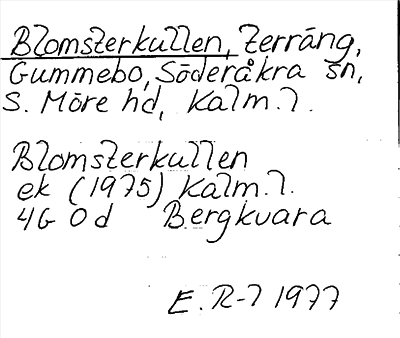 Blomsterkullen, terräng,
Gummebo, Söderåkra sn,
S. Möre hd, Kalm.l.
Blomsterkullen
ek (1975) Kalm.l.
4G 0d Bergkvara
E. R-l 1977